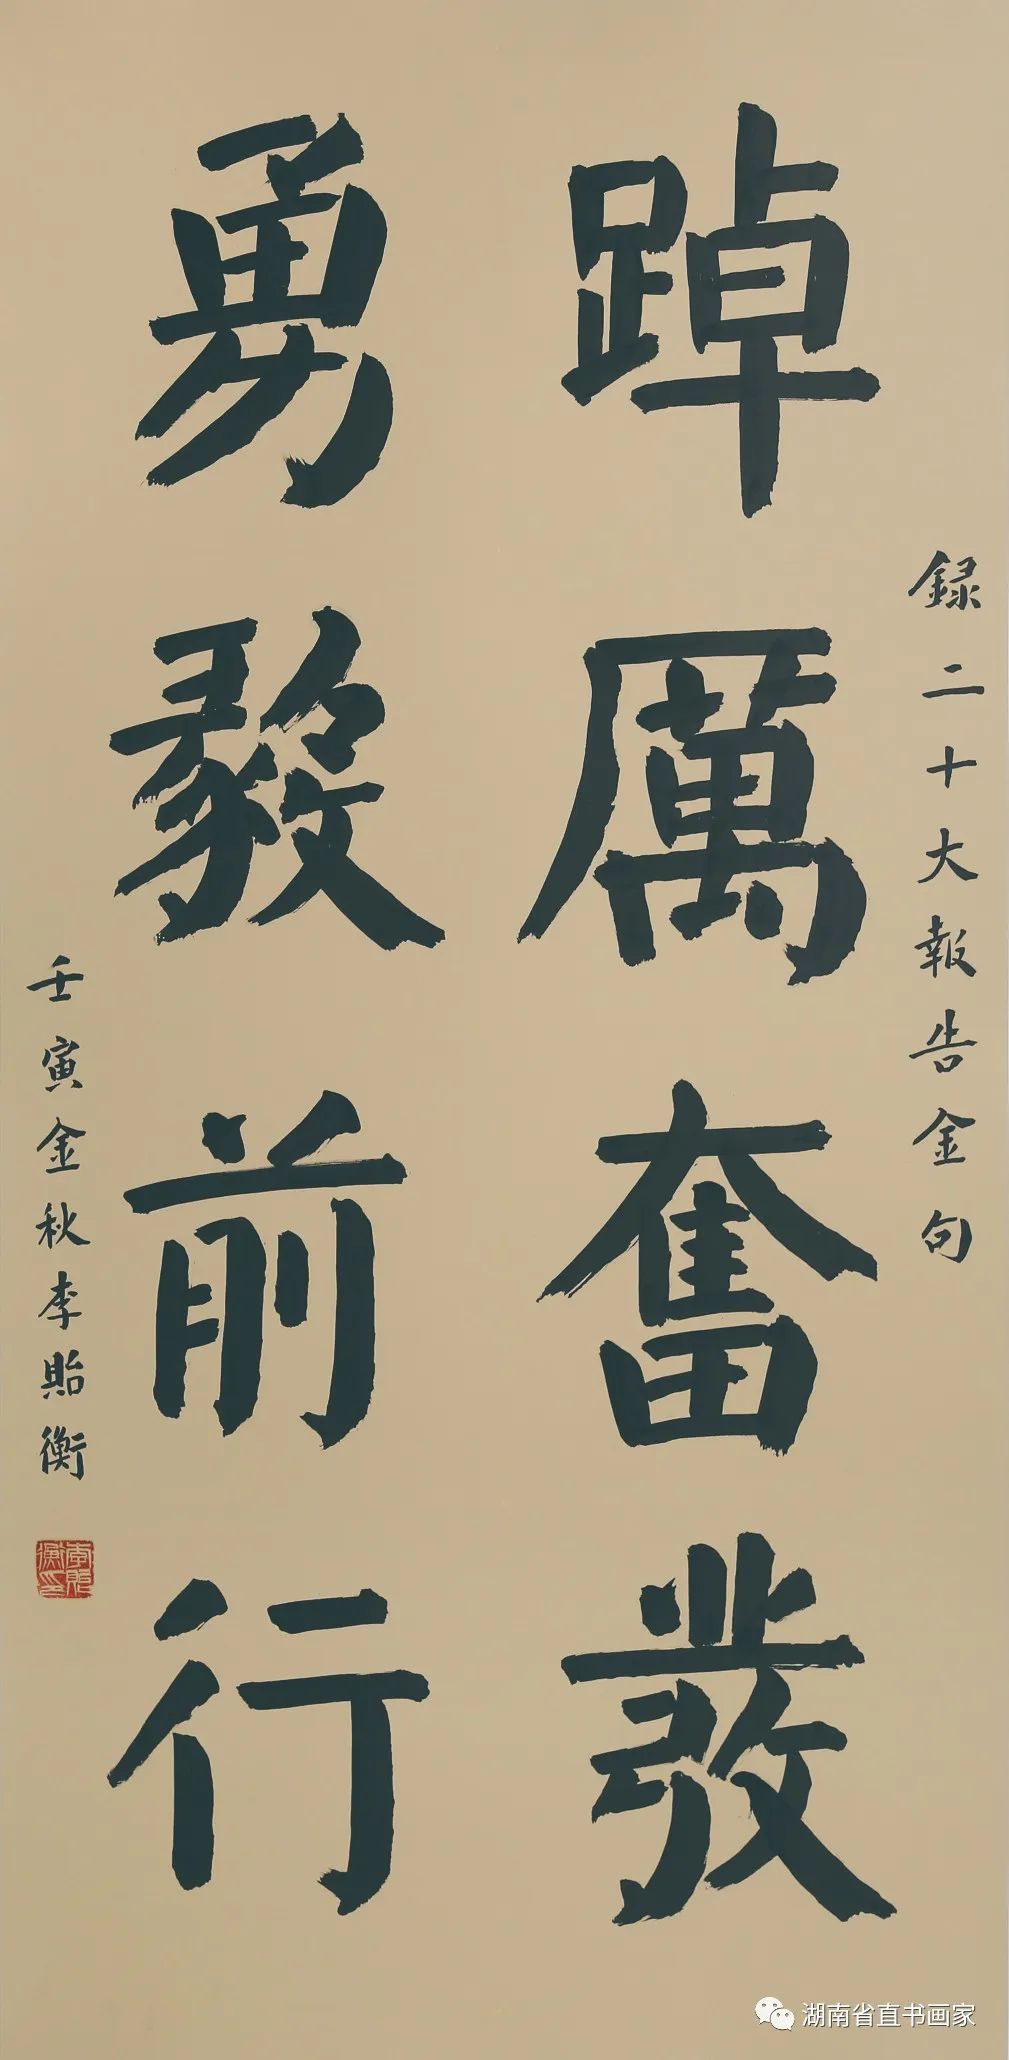 録二十大報告金句
踔厲奮發
勇毅前行
壬寅金秋李貽衡
李貽衡印
湖南省直书画家